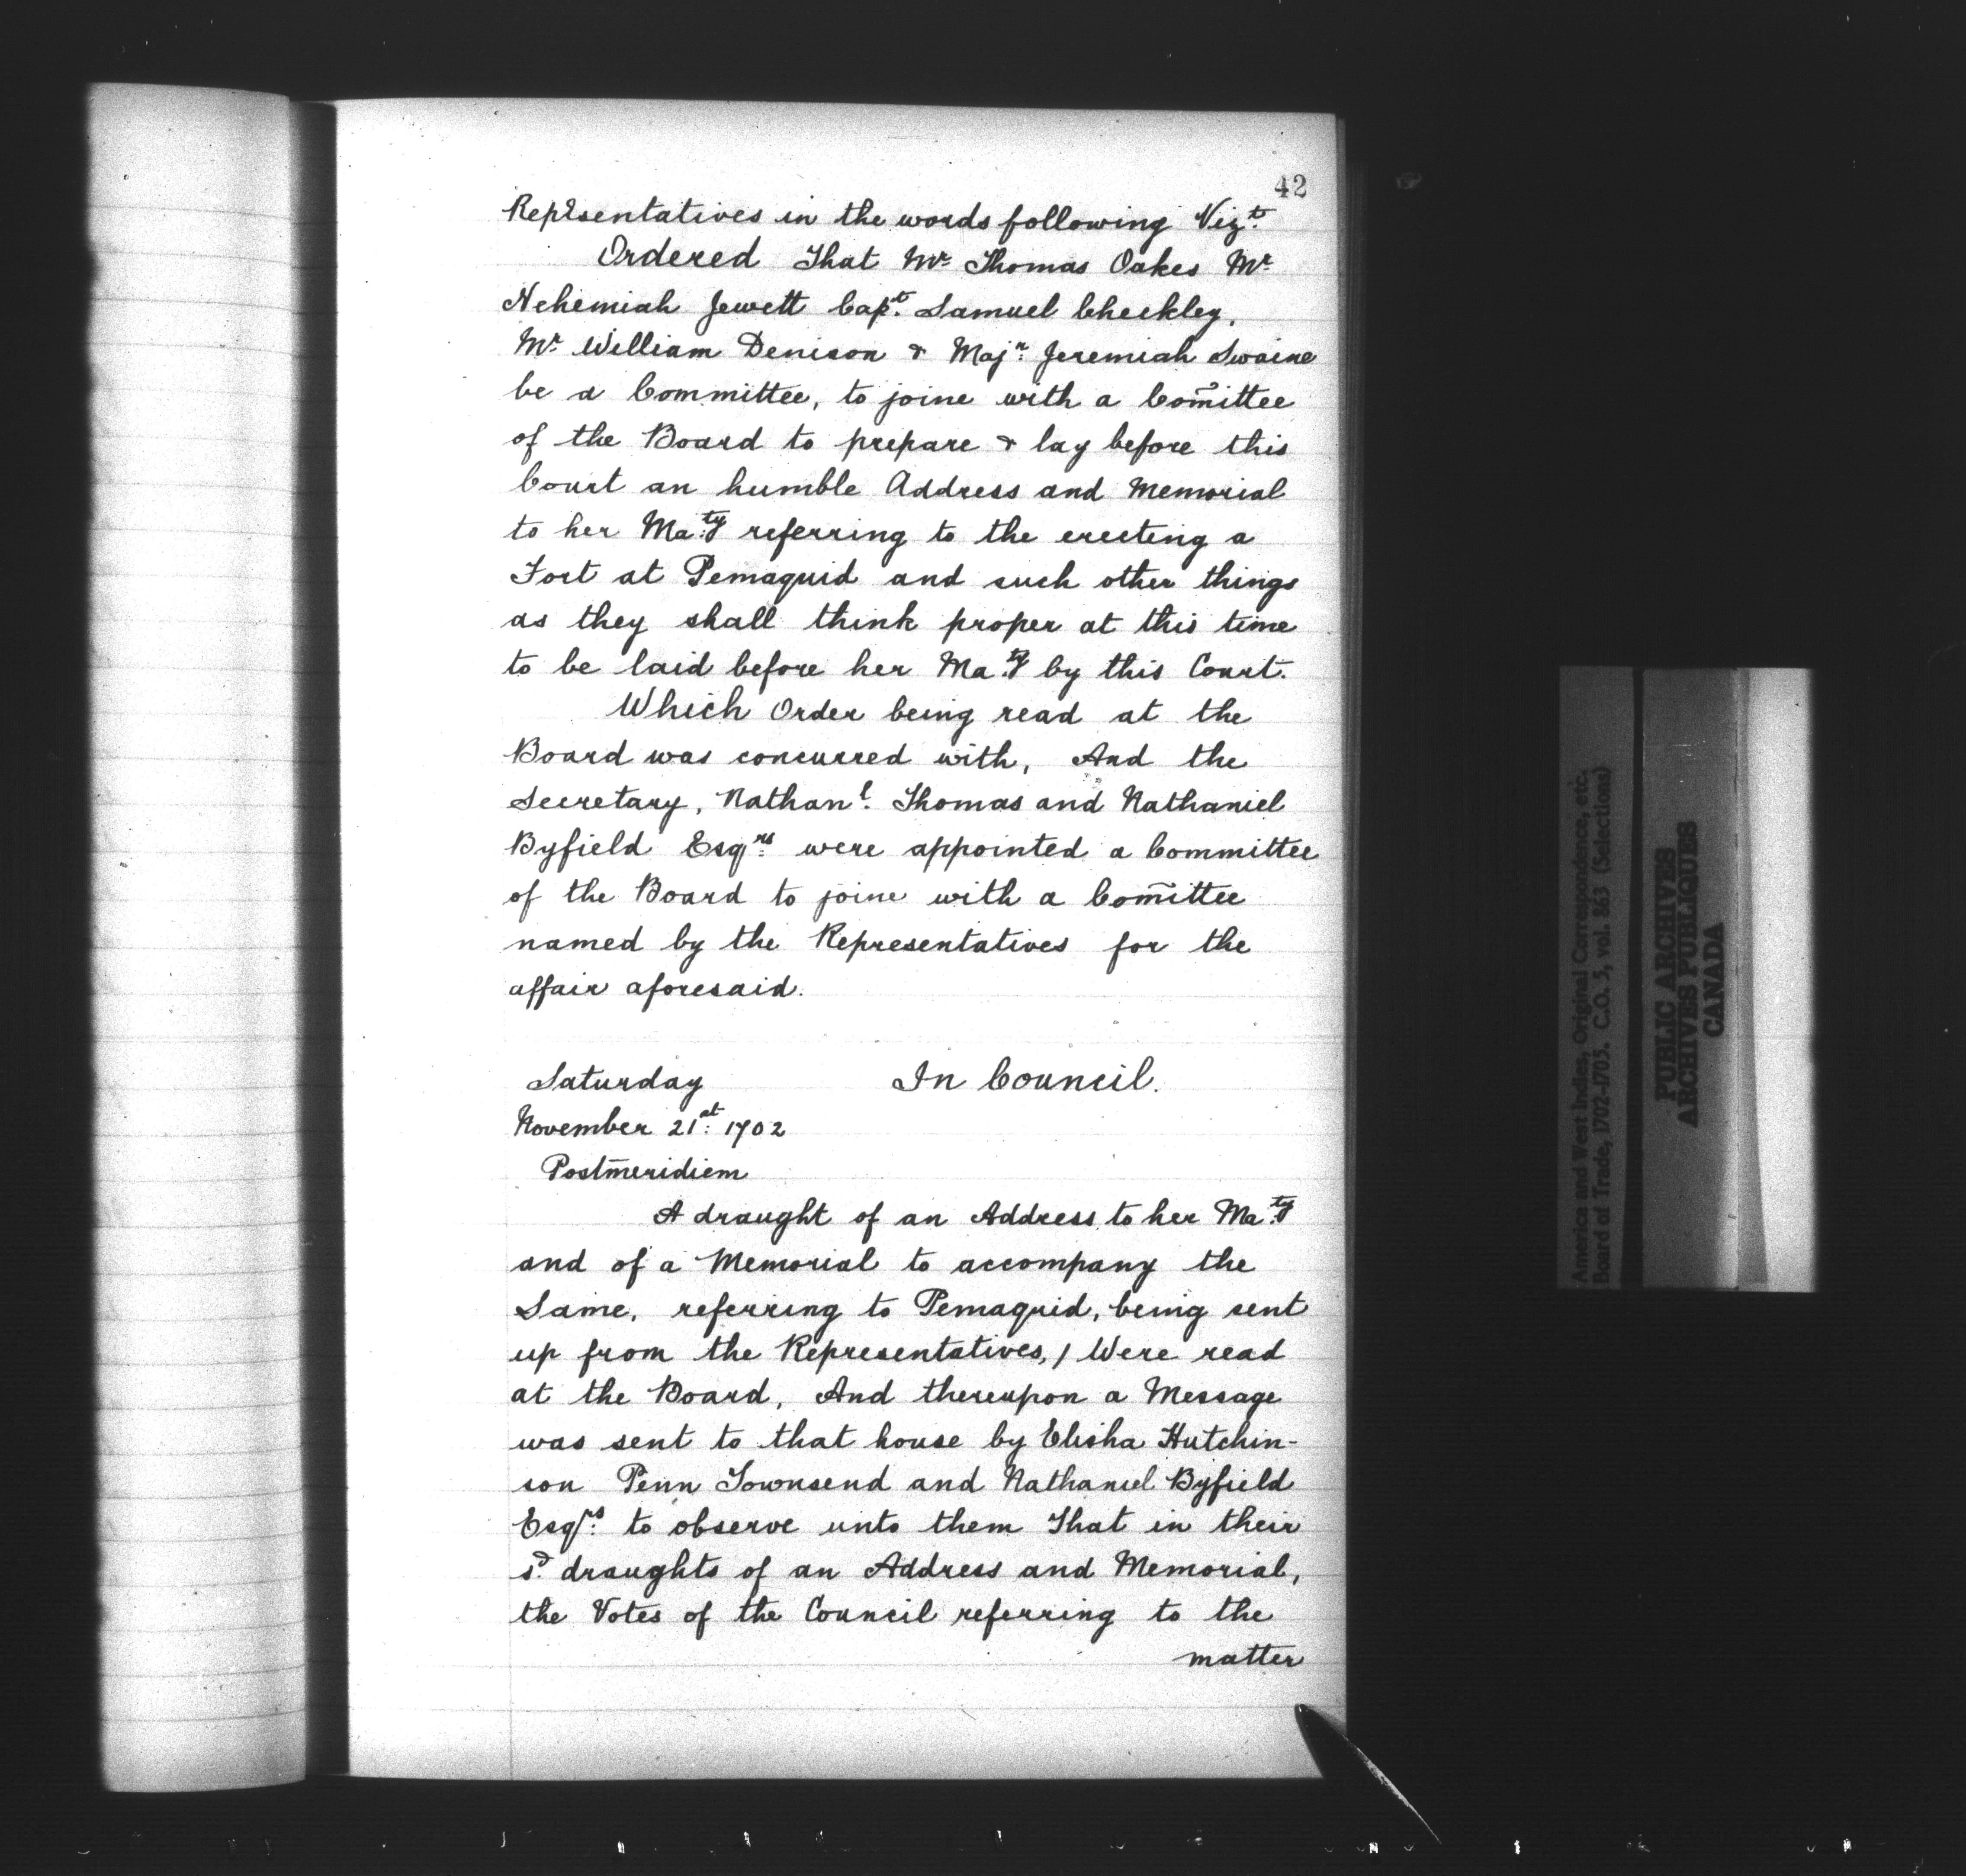 42
Rep̃sentatives in the words following Vizt.
Ordered That Mr. Thomas Oakes Mr.
Nehemiah Jewett Capt. Samuel Checkley,
Mr. William Denison & Majr. Jeremiah Swaine
be a Committee, to joine with a Com̃ittee
of the Board to prepare & lay before this
Court an humble Address and Memorial
to her Maty. referring to the erecting a
Fort at Pemaquid and such other things
as they shall think proper at this time
to be laid before her Maty. by this Court.
Which Order being read at the
Board was concurred with, And the
Secretary, Nathanl. Thomas and Nathaniel
Byfield Esqrs. were appointed a Committee
of the Board to joine with a Com̃ittee
named by the Representatives for the
affair aforesaid.
Saturday In Council.
November 21st. 1702
Postmeridiem
A draught of an Address to her Maty.
and of a Memorial to accompany the
Same, referring to Pemaquid, being sent
up from the Representatives, / Were read
at the Board, And thereupon a Message
was sent to that house by Elisha Hutchin-
son Penn Townsend and Nathaniel Byfield
Esqrs. to observe unto them That in their
sd. draughts of an Address and Memorial,
the Votes of the Council referring to the
matter
America and West Indies, Original Correspondence, etc.
Board of Trade, 1702-1705. C.O. 5, vol. 863 (Selections)
PUBLIC ARCHIVES
ARCHIVES PUBLIQUES
CANADA